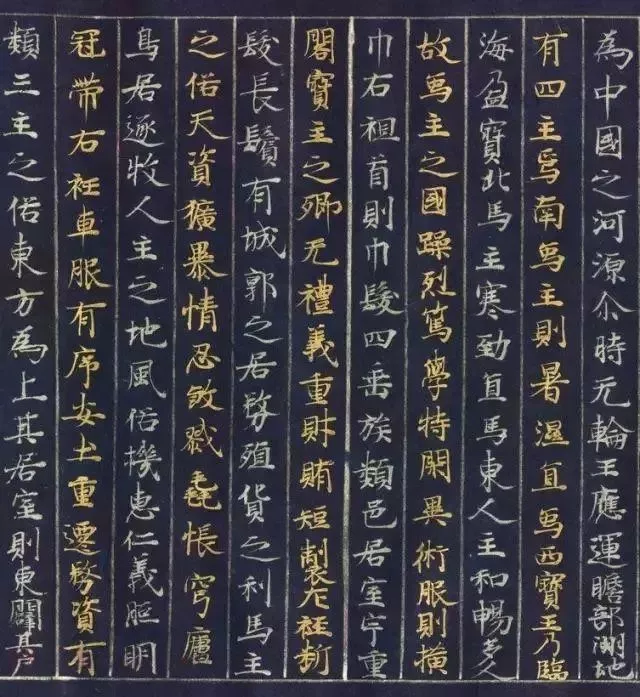 為中國之河源尒時无輪王應運贍部洲地
有四主焉南象主則暑濕宜象西寶主乃臨
海盈寶北馬主寒勁宜馬東人主和暢多人
故象主之國躁烈篤學特閑異術服則橫
巾右袒首則巾髮四垂族類邑居室宇重
閣寶主之鄉无禮義重財賄短製左衽斷
髮長鬚有城郭之居務殖貨之利馬主
之俗天資獷暴情忍煞戮毳帳穹廬
鳥居逐牧人主之地風俗機惠仁義照明
冠帶右衽車服有序安土重遷務資有
類三主之俗東方為上其居室則東闢其戶